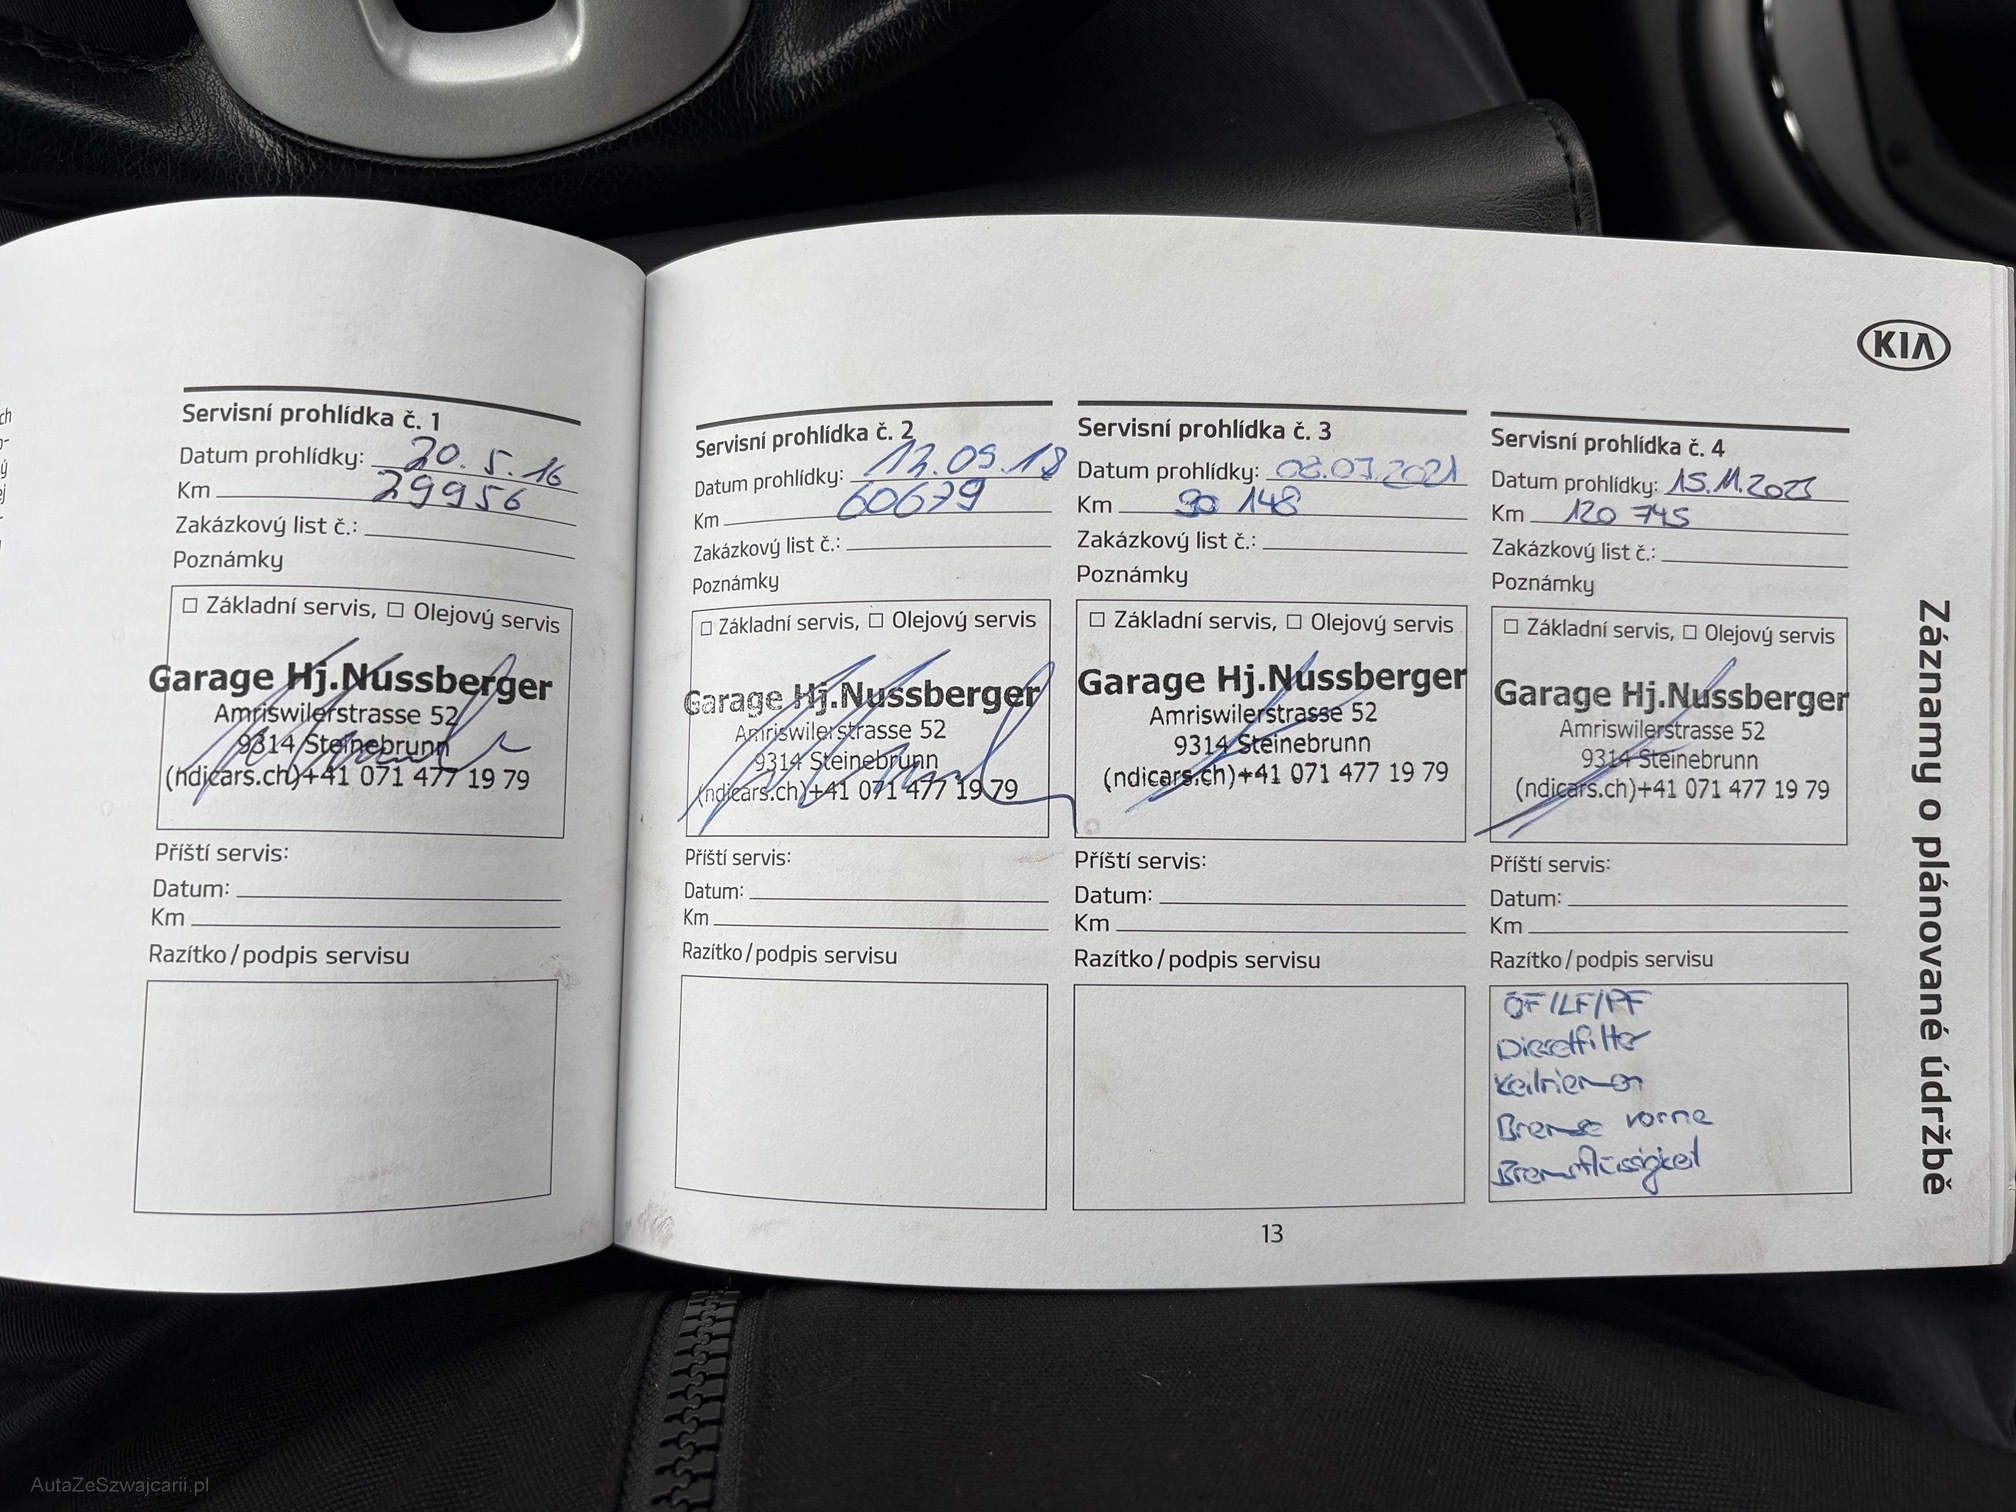 KIA
Servisní prohlídka č. 1
Datum prohlídky: 20.5.16
Km 29956
Zakázkový list č.:
Poznámky
Základní servis, Olejový servis
Garage Hj.Nussberger
Amriswilerstrasse 52
9314 Steinebrunn
(ndicars.ch)+41 071 477 19 79
Příští servis:
Datum:
Km
Razítko/podpis servisu
Servisní prohlídka č. 2
Datum prohlídky: 12.09.18
Km 60679
Zakázkový list č.:
Poznámky
Základní servis, Olejový servis
Garage Hj.Nussberger
Amriswilerstrasse 52
9314 Steinebrunn
(ndicars.ch)+41 071 477 19 79
Příští servis:
Datum:
Km
Razítko/podpis servisu
Servisní prohlídka č. 3
Datum prohlídky:
Km 90 148
Zakázkový list č.:
Poznámky
Základní servis, Olejový servis
Garage Hj.Nussberger
Amriswilerstrasse 52
9314 Steinebrunn
(ndicars.ch)+41 071 477 19 79
Příští servis:
Datum:
Km
Razítko/podpis servisu
Servisní prohlídka č. 4
Datum prohlídky: 15.11.2023
Km 120 745
Zakázkový list č.:
Poznámky
Základní servis, Olejový servis
Garage Hj.Nussberger
Amriswilerstrasse 52
9314 Steinebrunn
(ndicars.ch)+41 071 477 19 79
Příští servis:
Datum:
Km
Razítko/podpis servisu
ÖF/LF/PF
Dieselfilter
Keilriemen
Bremse vorne
Bremsflüssigkeit
Záznamy o plánované údržbě
13
AutaZeSzwajcarii.pl